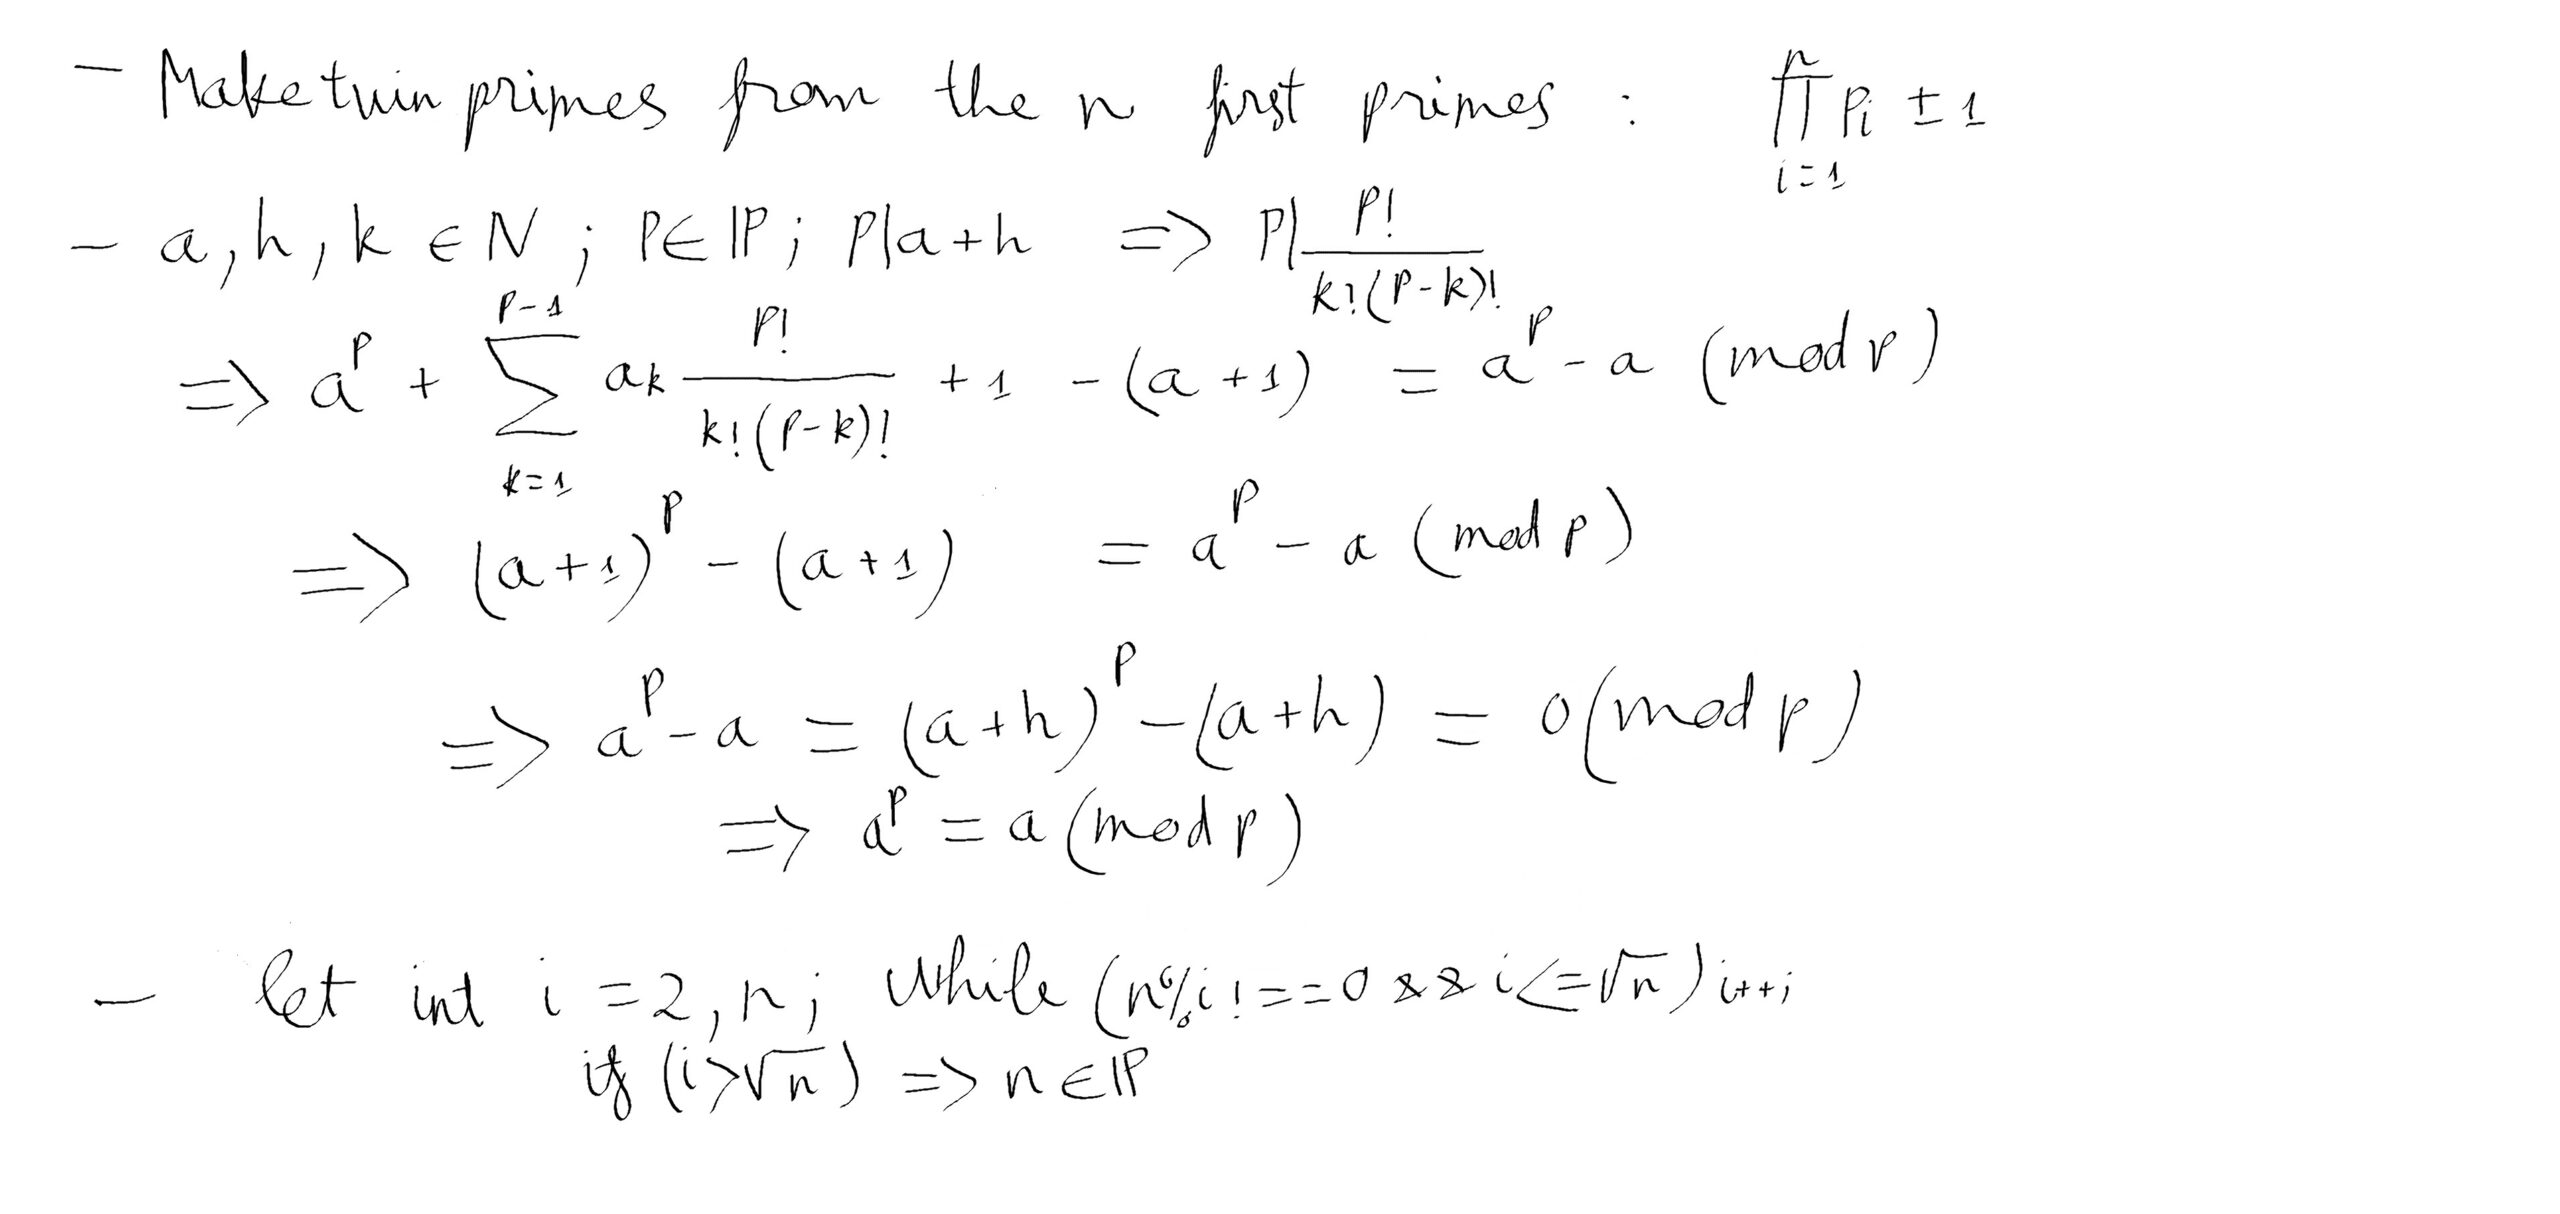 - Make twin primes from the n first primes : ∏_{i=1}^{n} p_i ± 1
- a, h, k ∈ N ; P ∈ ℙ ; P|a+h => P| P!/(k!(P-k)!)
=> a^P + ∑_{k=1}^{P-1} ak P!/(k!(P-k)!) + 1 - (a+1) = a^P - a (mod P)
=> (a+1)^P - (a+1) = a^P - a (mod P)
=> a^P - a = (a+h)^P - (a+h) = 0 (mod P)
=> a^P = a (mod P)
- let int i = 2, n; while (n%i!==0 && i<=√n) i++;
if (i>√n) => n ∈ ℙ